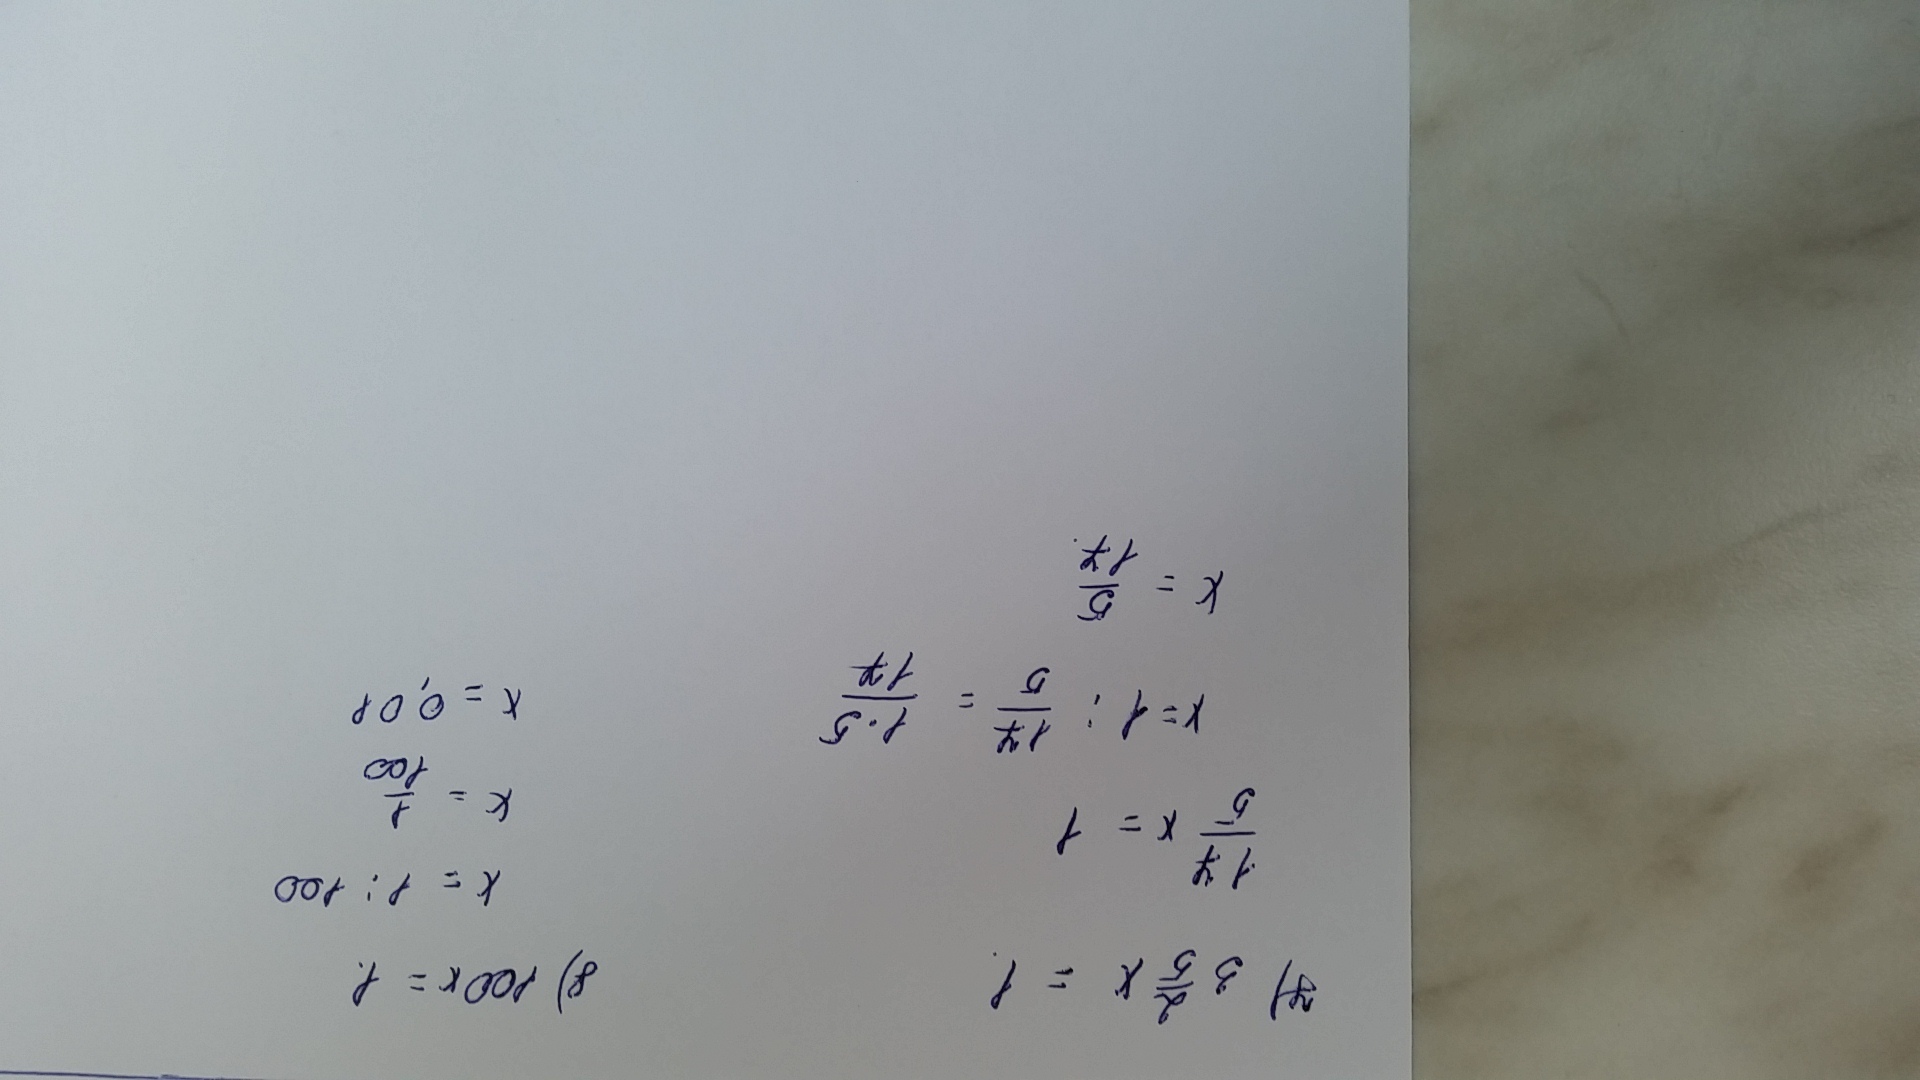 7) 3 2/5 x = 1.
17/5 x = 1
x = 1 : 17/5 = 1·5/17
x = 5/17
8) 100x = 1.
x = 1 : 100
x = 1/100
x = 0,01